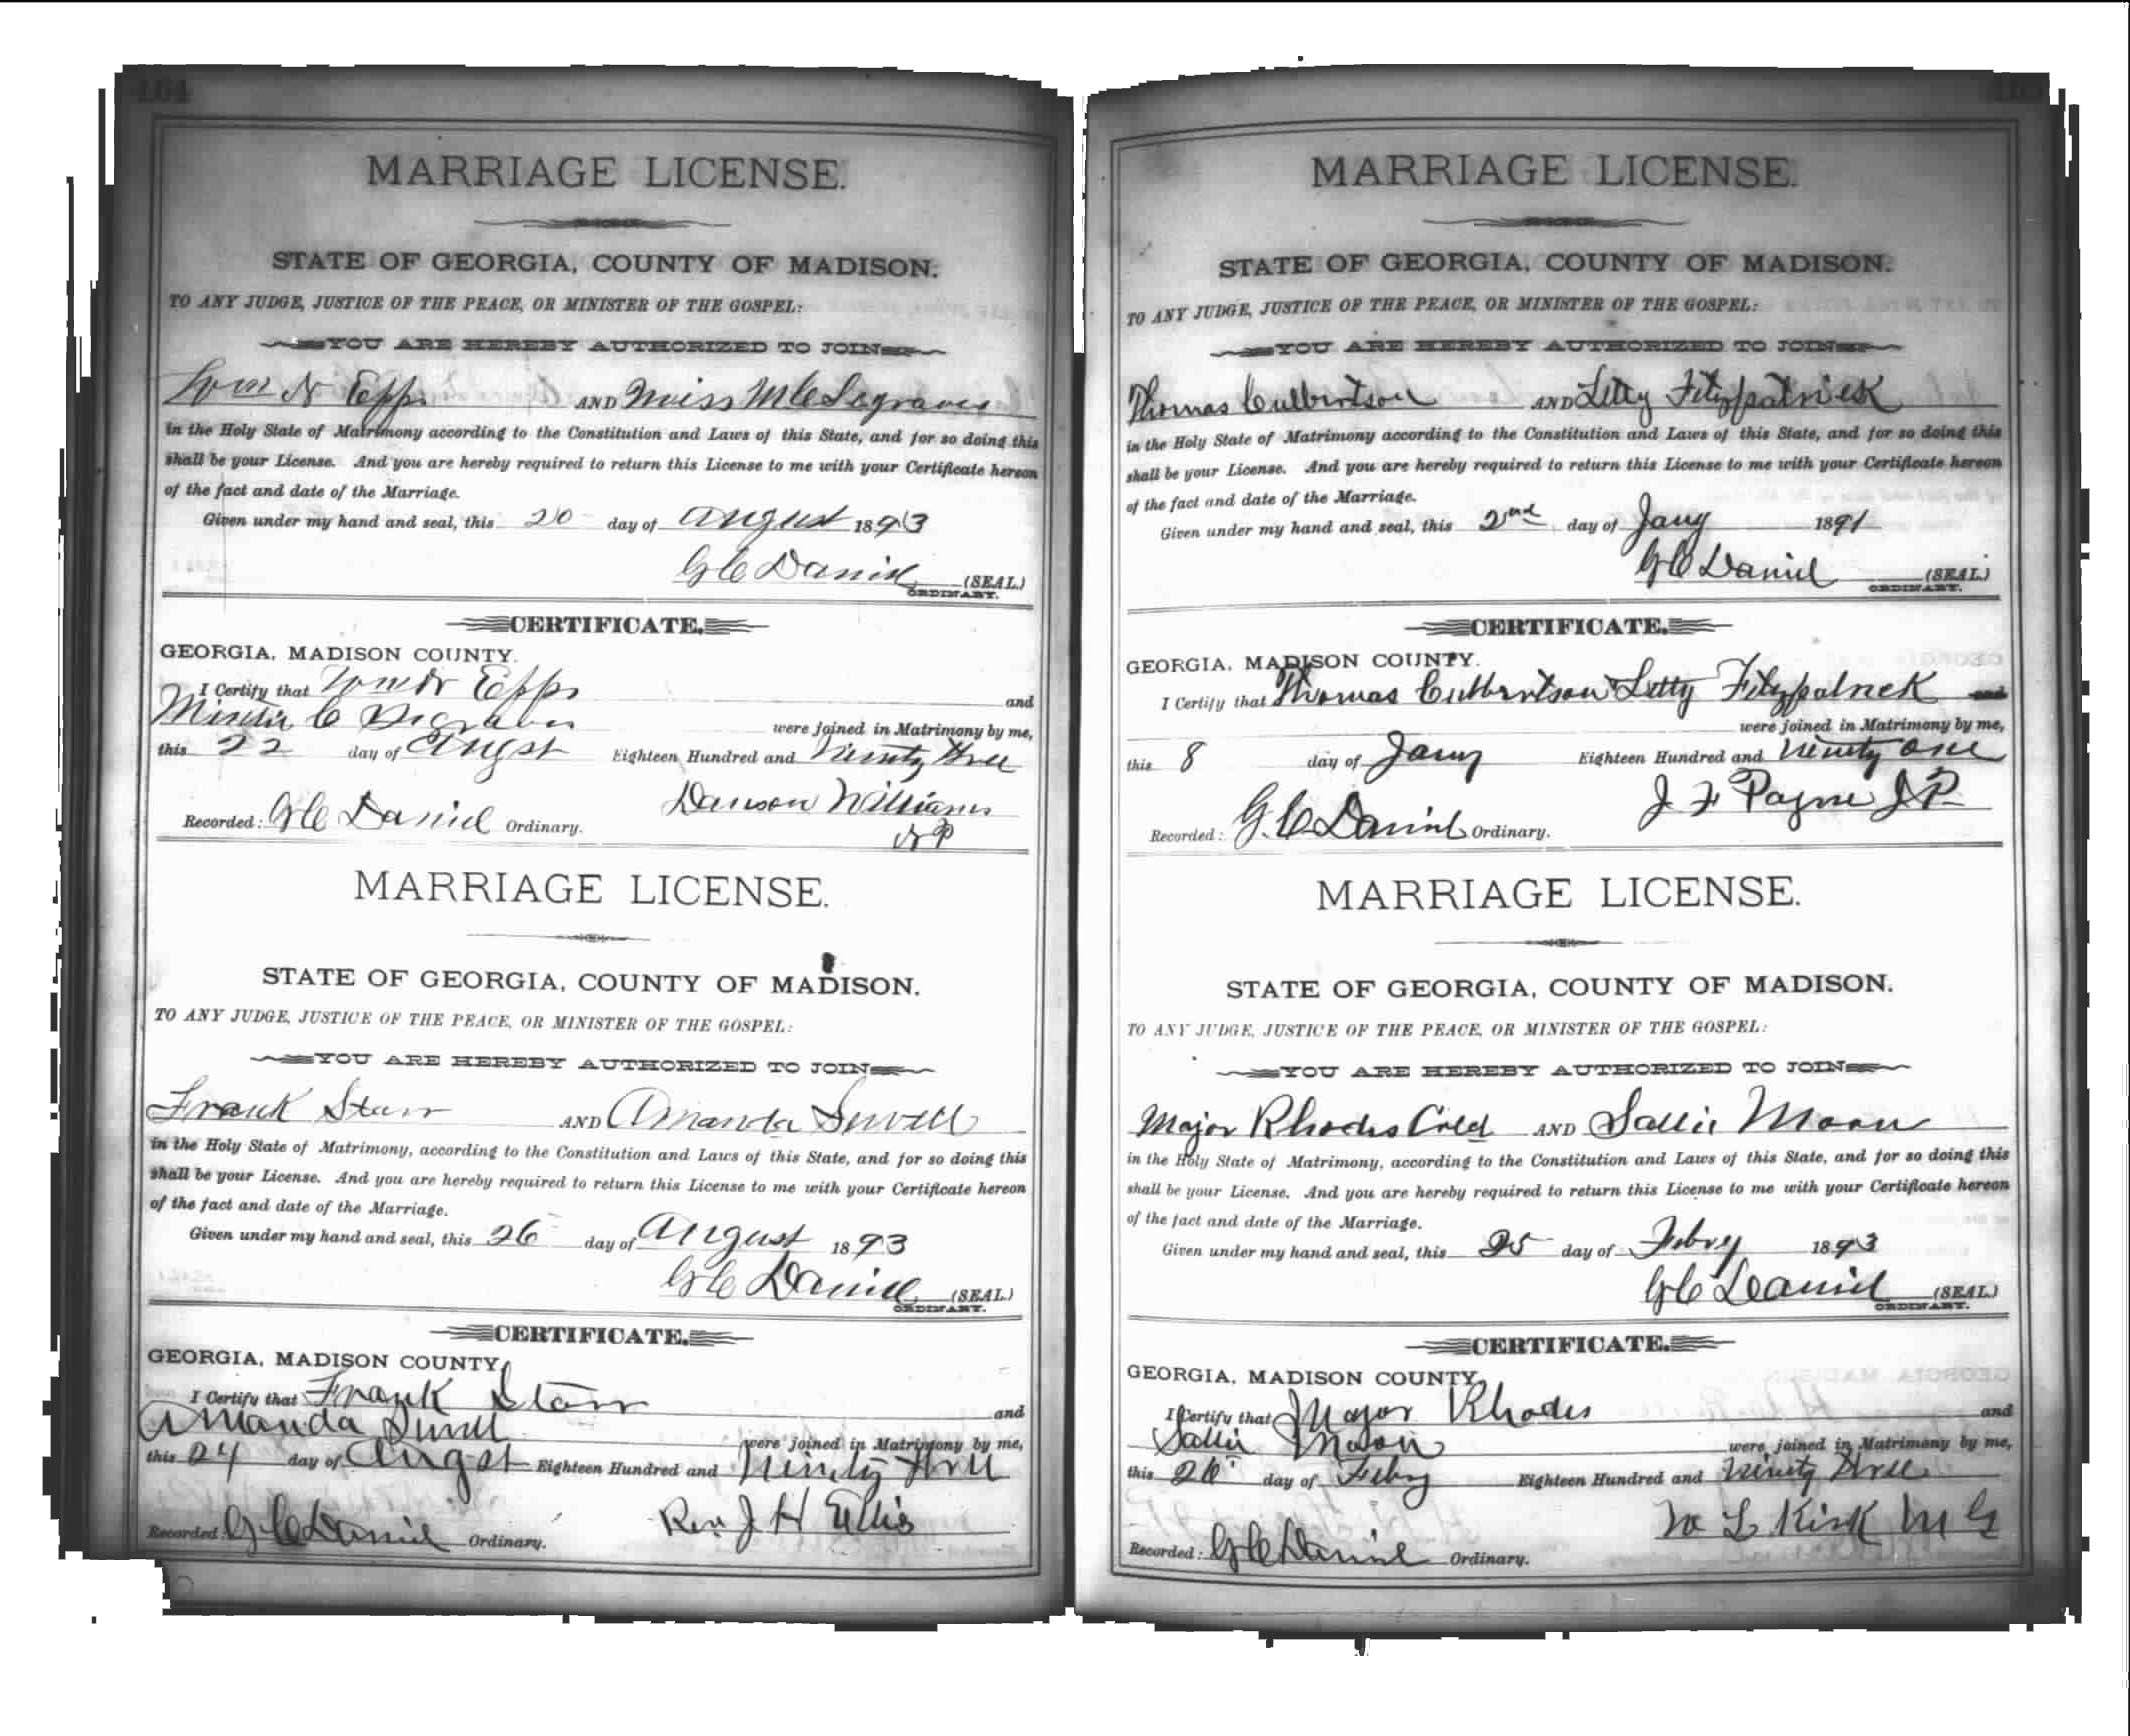 164
MARRIAGE LICENSE.
STATE OF GEORGIA, COUNTY OF MADISON.
TO ANY JUDGE, JUSTICE OF THE PEACE, OR MINISTER OF THE GOSPEL:
YOU ARE HEREBY AUTHORIZED TO JOIN
Wm N Epps AND Miss M C Segraves
in the Holy State of Matrimony according to the Constitution and Laws of this State, and for so doing this
shall be your License. And you are hereby required to return this License to me with your Certificate hereon
of the fact and date of the Marriage.
Given under my hand and seal, this 20 day of August 1893
G C Daniel (SEAL.)
ORDINARY.
CERTIFICATE.
GEORGIA, MADISON COUNTY.
I Certify that Wm N Epps and
C Segraves were joined in Matrimony by me,
this 22 day of Augst Eighteen Hundred and Ninety three
Dawson Williams
Recorded: G C Daniel Ordinary. NP
MARRIAGE LICENSE.
STATE OF GEORGIA, COUNTY OF MADISON.
TO ANY JUDGE, JUSTICE OF THE PEACE, OR MINISTER OF THE GOSPEL:
YOU ARE HEREBY AUTHORIZED TO JOIN
Frank Starr AND Amanda Sewell
in the Holy State of Matrimony, according to the Constitution and Laws of this State, and for so doing this
shall be your License. And you are hereby required to return this License to me with your Certificate hereon
of the fact and date of the Marriage.
Given under my hand and seal, this 26 day of August 1893
G C Daniel (SEAL.)
ORDINARY.
CERTIFICATE.
GEORGIA, MADISON COUNTY,
I Certify that Frank Starr and
Amanda Sewell were joined in Matrimony by me,
this 24 day of Augst Eighteen Hundred and Ninety three
Recorded: G C Daniel Ordinary. Rev. J H Ellis
MARRIAGE LICENSE.
STATE OF GEORGIA, COUNTY OF MADISON.
TO ANY JUDGE, JUSTICE OF THE PEACE, OR MINISTER OF THE GOSPEL:
YOU ARE HEREBY AUTHORIZED TO JOIN
Thomas Culbertson AND Letty Fitzpatrick
in the Holy State of Matrimony according to the Constitution and Laws of this State, and for so doing this
shall be your License. And you are hereby required to return this License to me with your Certificate hereon
of the fact and date of the Marriage.
Given under my hand and seal, this 2nd day of Jany 1891
G C Daniel (SEAL.)
ORDINARY.
CERTIFICATE.
GEORGIA, MADISON COUNTY.
I Certify that Thomas Culbertson & Letty Fitzpatrick and
were joined in Matrimony by me,
this 8 day of Jany Eighteen Hundred and Ninety one
J F Payne J.P.
Recorded: G. C Daniel Ordinary.
MARRIAGE LICENSE.
STATE OF GEORGIA, COUNTY OF MADISON.
TO ANY JUDGE, JUSTICE OF THE PEACE, OR MINISTER OF THE GOSPEL:
YOU ARE HEREBY AUTHORIZED TO JOIN
Major Rhodes Cold AND Sallie Moon
in the Holy State of Matrimony, according to the Constitution and Laws of this State, and for so doing this
shall be your License. And you are hereby required to return this License to me with your Certificate hereon
of the fact and date of the Marriage.
Given under my hand and seal, this 25 day of Febry 1893
G C Daniel (SEAL.)
ORDINARY.
CERTIFICATE.
GEORGIA, MADISON COUNTY,
I Certify that Major Rhodes and
Sallie Moon were joined in Matrimony by me,
this 26 day of Febry Eighteen Hundred and Ninety three
W L Kirk M G
Recorded: G C Daniel Ordinary.